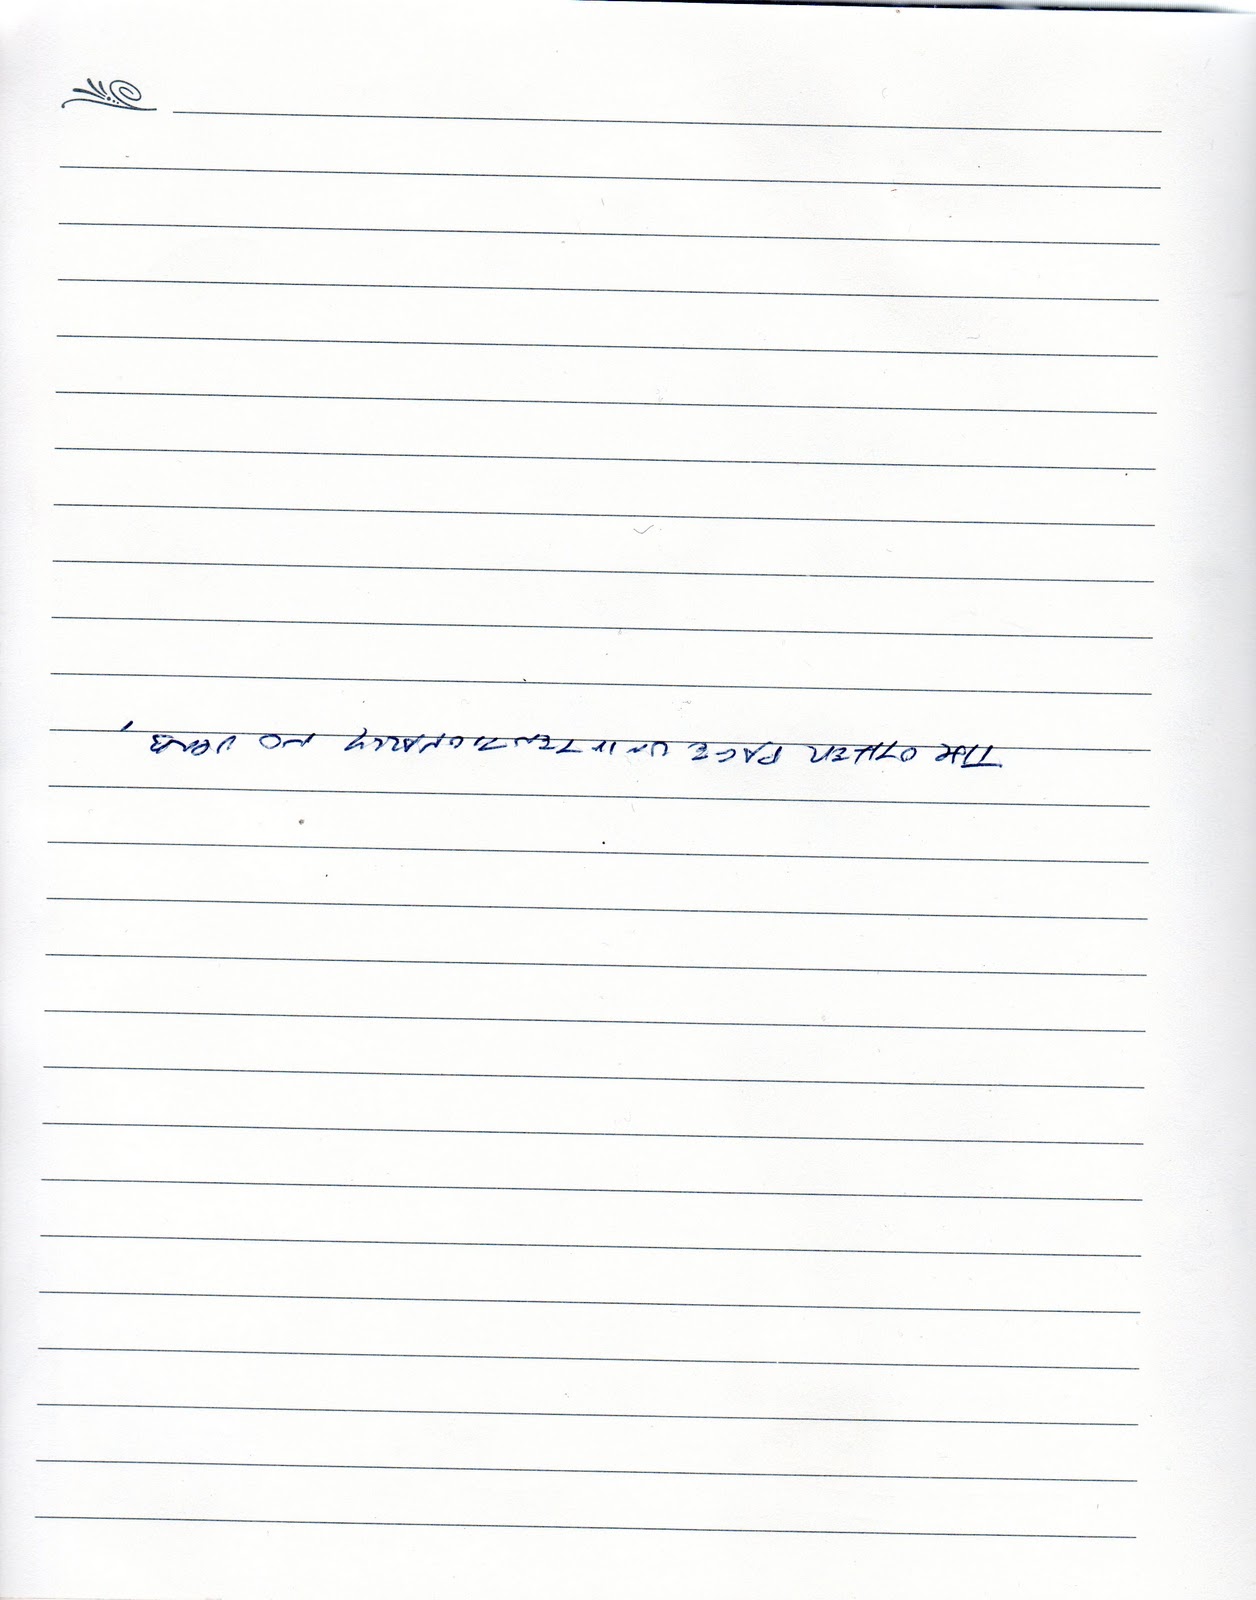 THE OTHER PAGE UNINTENTIONALLY NO VERB,